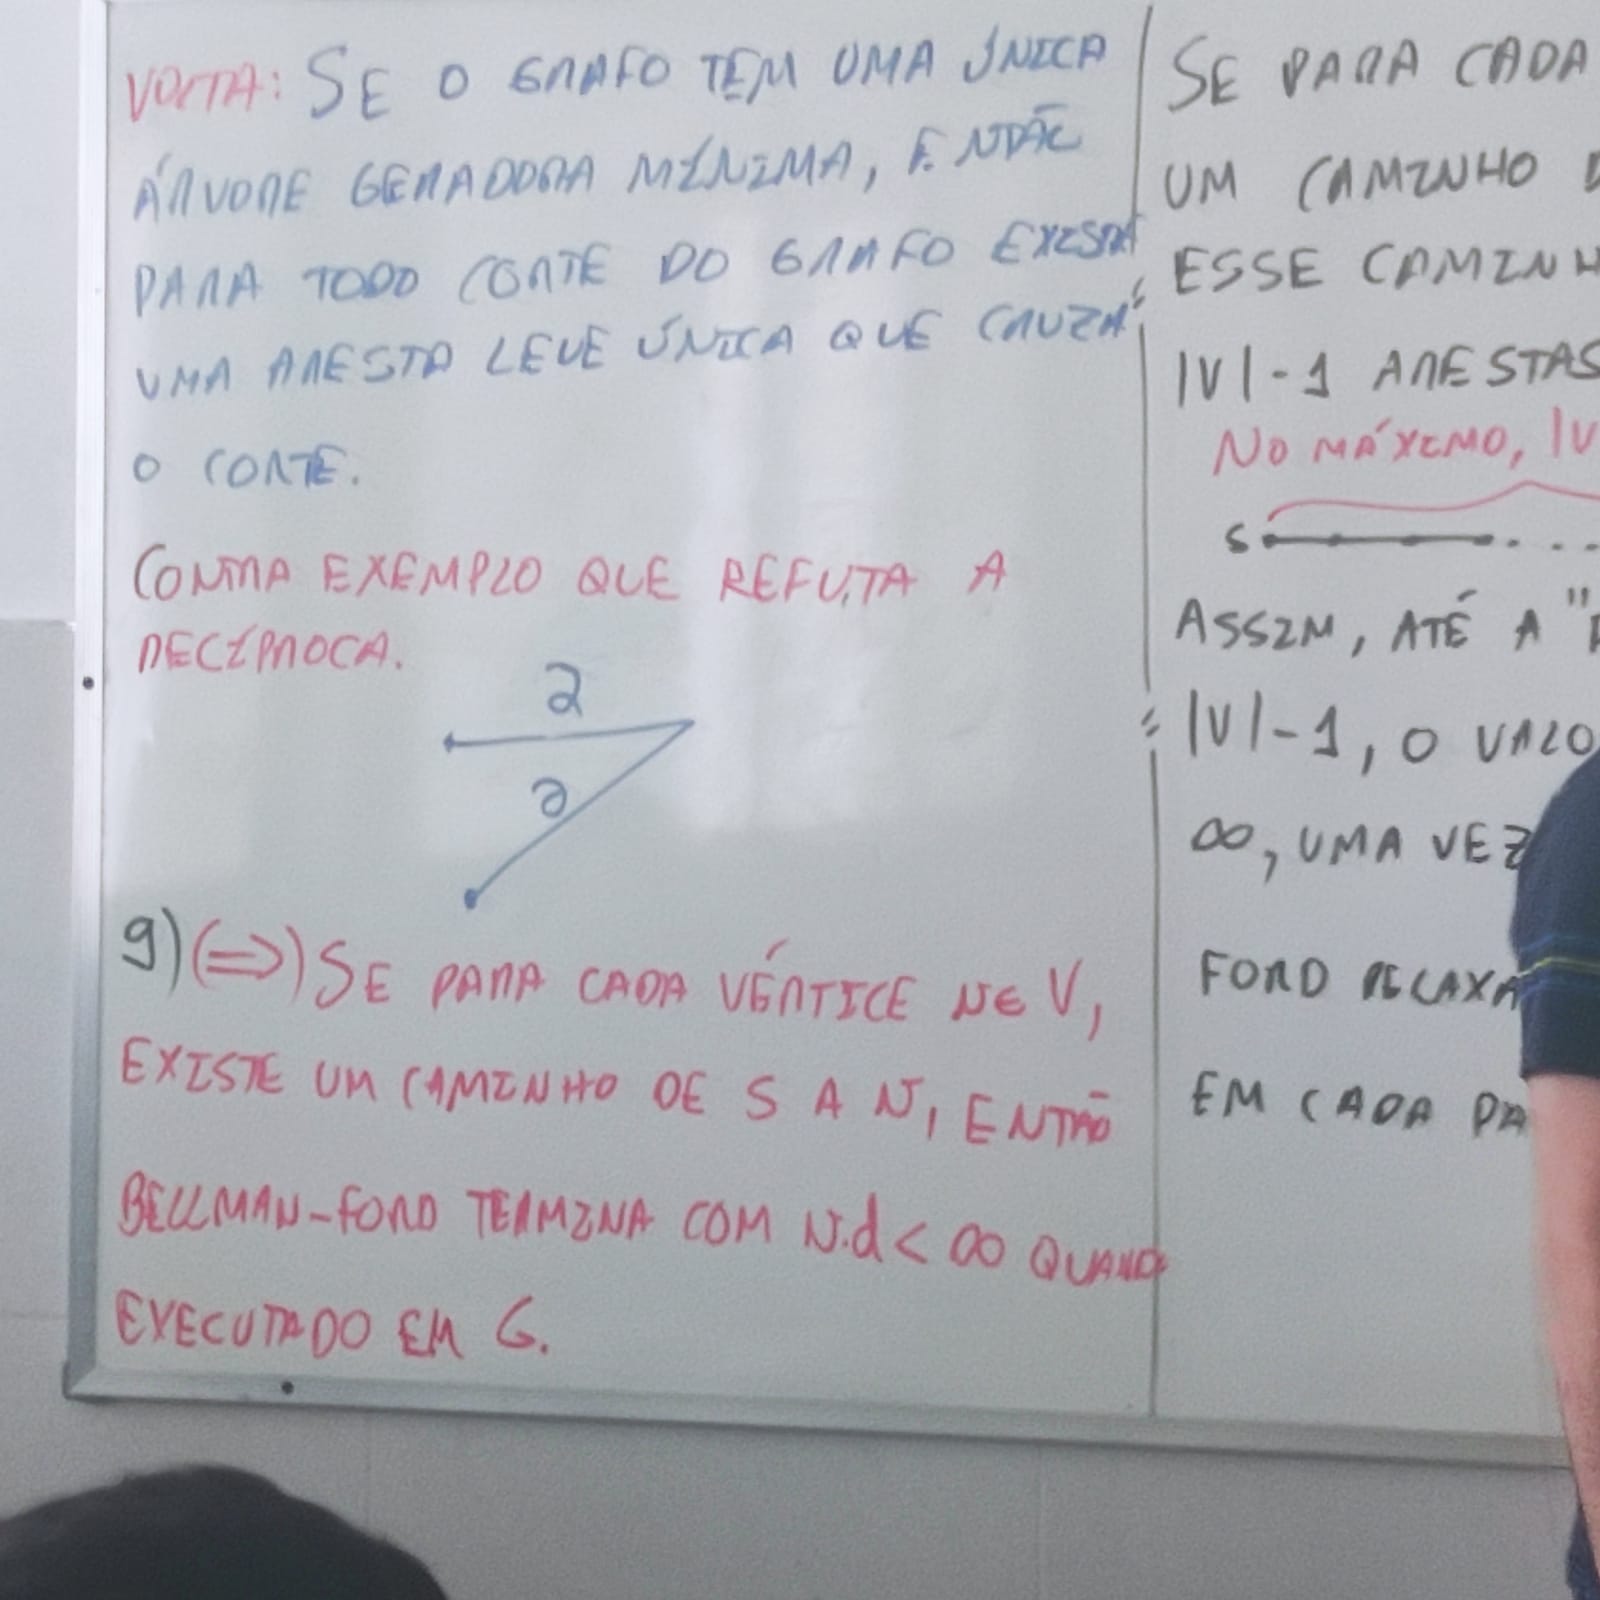 VOLTA: SE O GRAFO TEM UMA ÚNICA
ÁRVORE GERADORA MÍNIMA, ENTÃO
PARA TODO CORTE DO GRAFO EXISTA
UMA ARESTA LEVE ÚNICA QUE CRUZA
O CORTE.
CONTRA EXEMPLO QUE REFUTA A
RECÍPROCA.
2
2
9) (⇒) SE PARA CADA VÉRTICE v ∈ V,
EXISTE UM CAMINHO DE S A v, ENTÃO
BELLMAN-FORD TERMINA COM v.d < ∞ QUANDO
EXECUTADO EM G.
SE PARA CADA
UM CAMINHO
ESSE CAMINH
|V|-1 ARESTAS
NO MÁXIMO, |V
S
ASSIM, ATÉ A "
|V|-1, O VALO
∞, UMA VEZ
FORD RELAXA
EM CADA PA